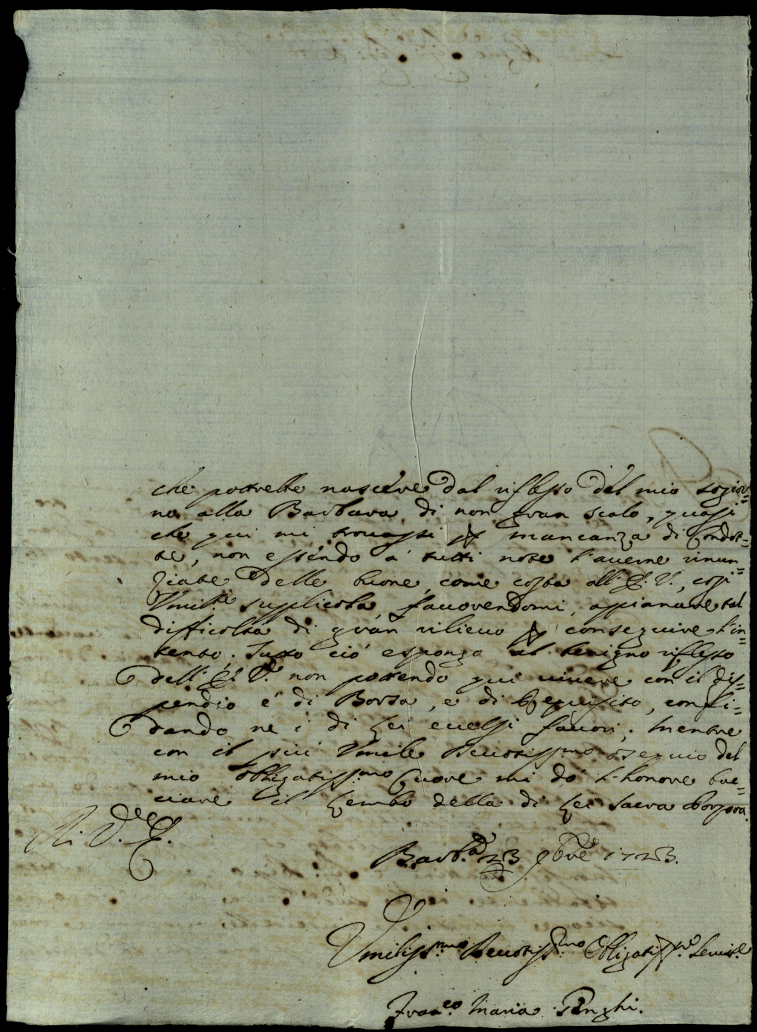 che potrebbe nascere dal riflesso del mio sogior=
no alla Barbara di non gran scalo, quasi
che qui mi trovassi p mancanza di Condot=
te, non essendo a' tutti note l'averne rinun=
ziate delle buone, come costa all' E. V., così
Umilte supplicola, favorendomi, appianare tal
difficoltà di gran rilievo p conseguire l'in=
tento. Tutto ciò espongo al benigno riflesso
dell' E. V. non potendo qui vivere con il dis=
pendio e' di Borsa, e di, confi=
dando ne i di Lei eccelsi favori; mentre
con il più Umile Devotissmo ossequio del
mio obbligatissmo Cuore mi dò l'honore bac=
ciare il Lembo della di Lei Sacra Porpora.
Di V. E.
Barb.a 23 9bre 1723.
Umilissmo Devotissmo Obbligatissmo Servire
Franco Maria